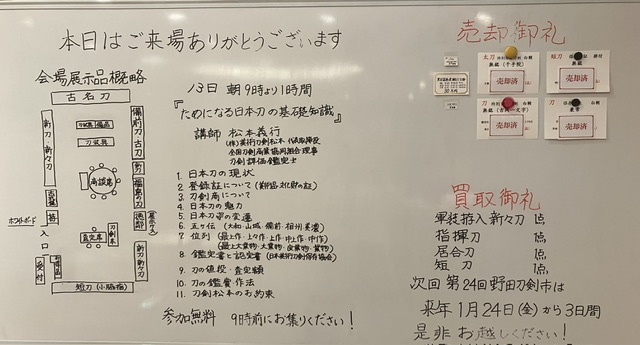 本日はご来場ありがとうございます
会場展示品概略
古名刀
新刀・新々刀
刀装具・備品
刀装具
商談席
備前刀
古刀
ホワイトボード
入口
受付
査定席
短刀(小脇指)
13日 朝9時より1時間
『ためになる日本刀の基礎知識』
講師 松本義行
(株)美術刀剣松本 代表取締役
全国刀剣商業協同組合理事
刀剣評価鑑定士
1. 日本刀の現状
2. 登録証について
3. 刀剣商について
4. 日本刀の魅力
5. 日本刀の変遷
6. 五ヶ伝 (大和・山城・備前・相州・美濃)
7. 位列 (最上作・上々作・上作・中上作・中作)
(最上大業物・大業物・良業物・業物)
8. 鑑定書と認定書 (日本美術刀剣保存協会)
9. 刀の値段・査定額
10. 刀の鑑賞作法
11. 刀剣松本のお約束
参加無料 9時前にお集りください!
売却御礼
太刀
無銘(千手院)
売却済
短刀
無銘
売却済
刀
売却済
刀
売却済
買取御礼
軍徒拵入新々刀 1点
指揮刀 1点
居合刀 1点
短刀 1点
次回 第24回野田刀剣市は
来年1月24日(金)から3日間
是非お越しください!